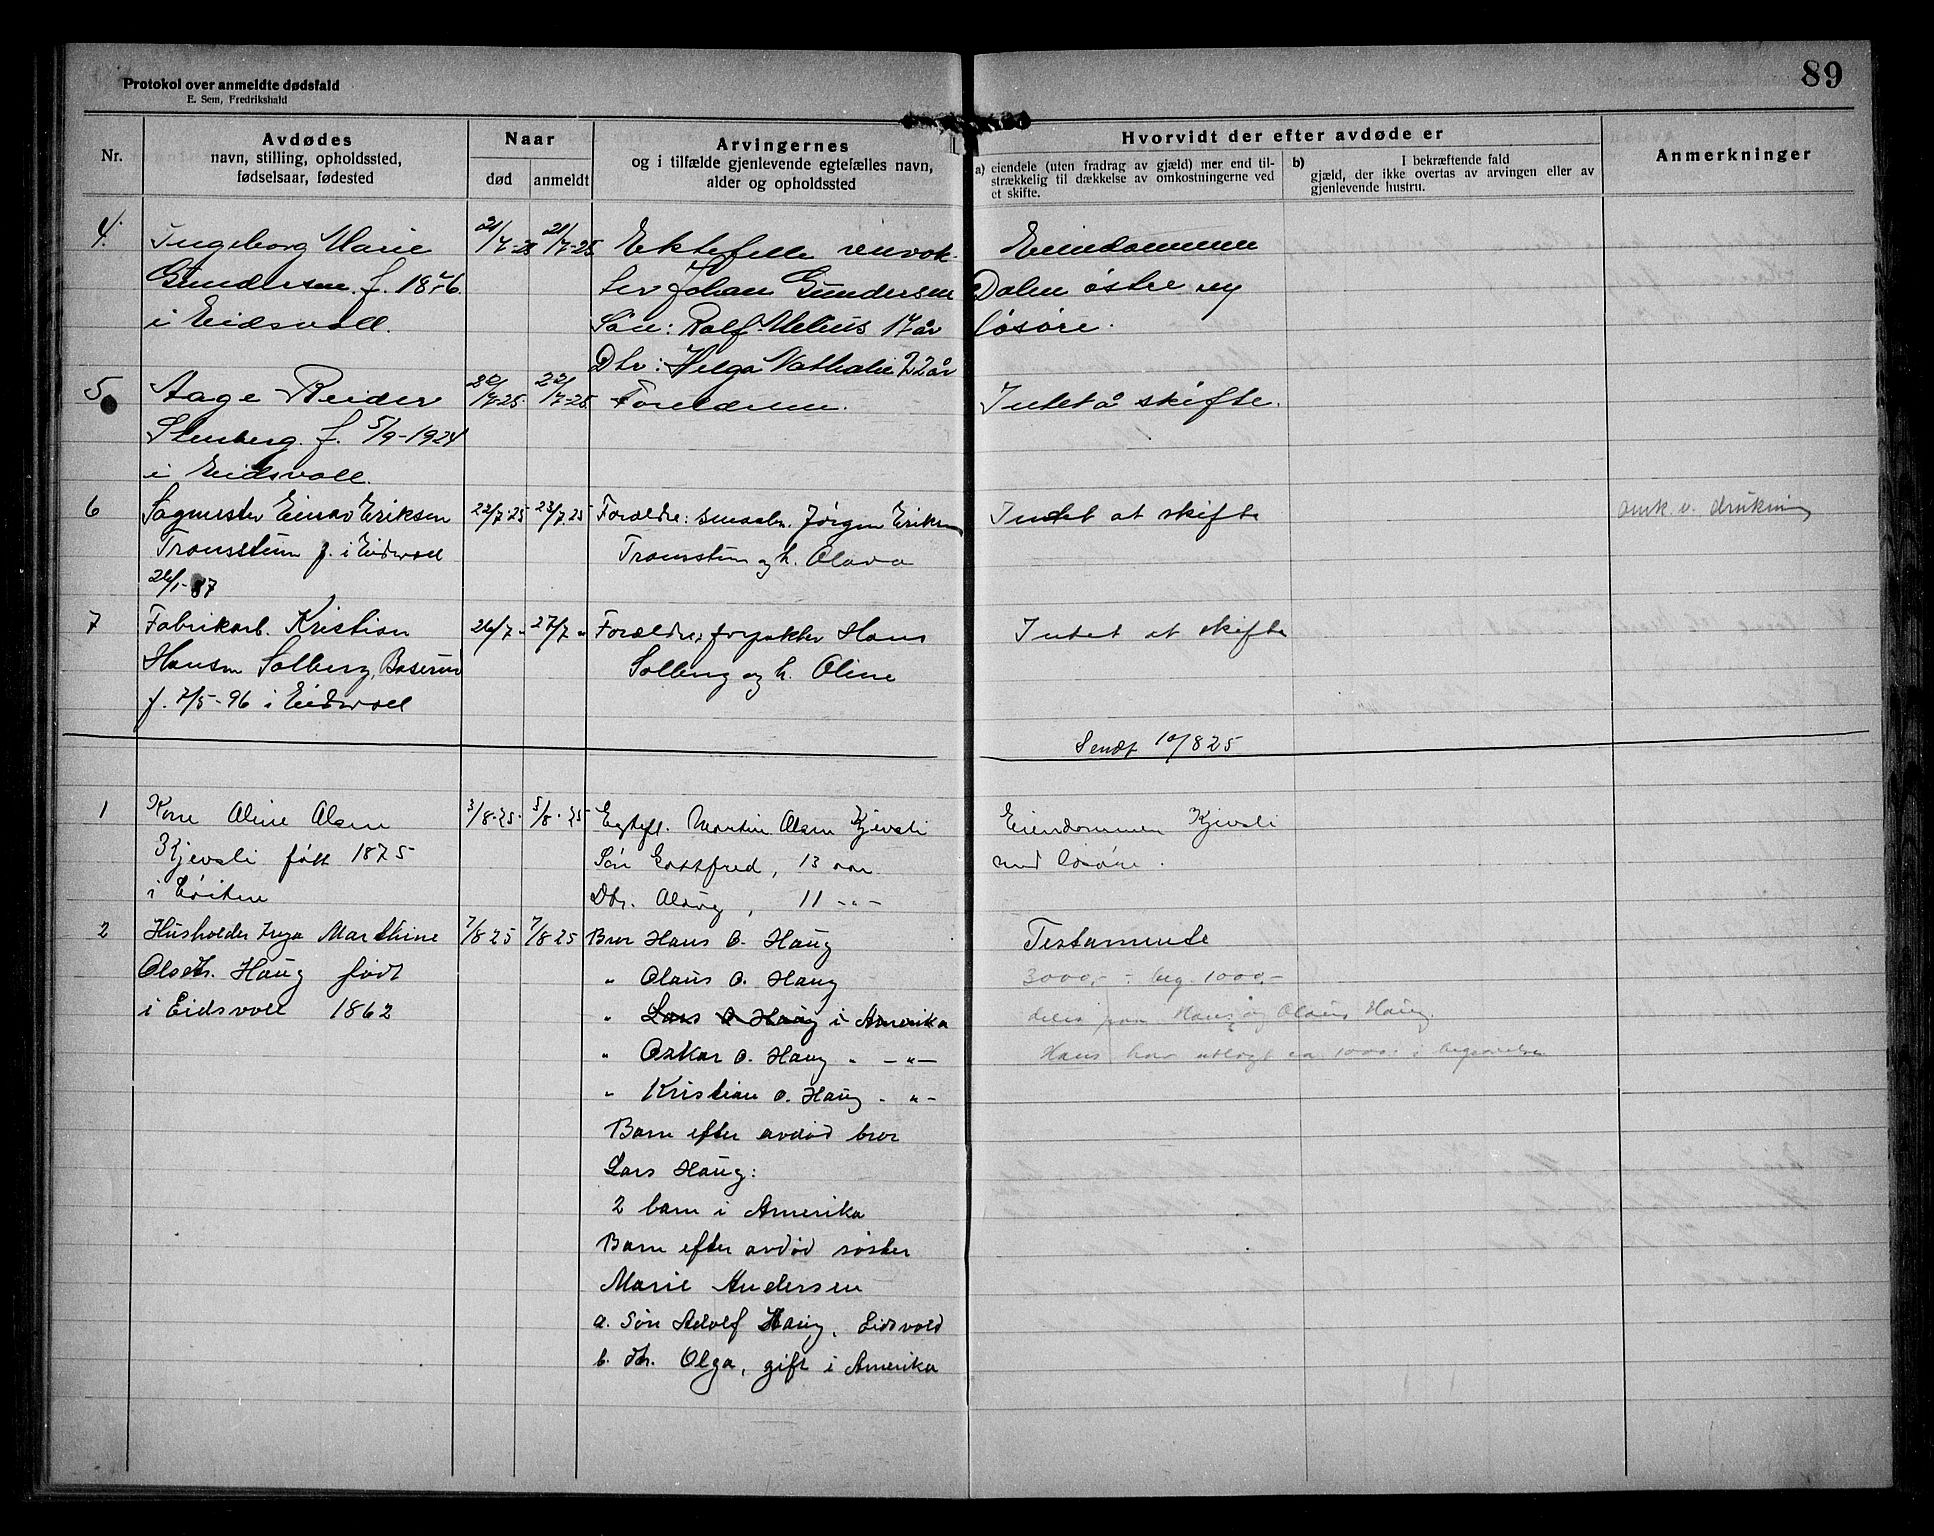 Protokol over anmeldte dødsfald
E. Sem, Fredrikshald
89
Nr.
Avdødes
navn, stilling, opholdssted,
fødselsaar, fødested
Naar
død
anmeldt
Arvingernes
og i tilfælde gjenlevende egtefælles navn,
alder og opholdssted
Hvorvidt der efter avdøde er
a) eiendele (uten fradrag av gjæld) mer end til-
strækkelig til dækkelse av omkostningerne ved
et skifte.
b) I bekræftende fald
gjæld, der ikke overtas av arvingen eller av
gjenlevende hustru.
Anmerkninger
4. Ingeborg Marie 21/7-25 21/7-25 Ektefelle renvok- Eiendommen
Gundersen f. 1876 ter Johan Gundersen Dalen østre og
i Eidsvoll. Søn: Rolf Melius 17 år løsøre.
Dtr: Helga Nathalie 22 år
5 Aage Reider 22/7-25. 22/7-25. Forældrene. Intet å skifte.
Stenberg. f. 5/9-1924
i Eidsvoll.
6 Sagmester Einar Eriksen 22/7-25 23/7 25 Forældre: Jørgen Eriksen Intet at skifte omk. v. drukning
f. i Eidsvoll og h. Olava
26/1-87
7 Fabrikarb. Kristian 26/7 " 27/7 " Forældre, forpakter Hans Intet at skifte
Hansen Solberg, Solberg og h. Oline
f. 7/5-96 i Eidsvoll
Sendt 10/8 25
1 Kone Oline Olsen 3/8-25. 5/8-25 Egtef. Martin Olsen Kjevsli Eiendommen Kjevsli
Kjevsli født 1875 Søn Gottfred, 13 aar med løsøre.
i Løiten Dtr. Olaug, 11 -"-
2 Husholder Inga Marthine 7/8 25 7/8 25 Bror Hans O. Haug Testamente
Olsdtr. Haug født " Olaus O. Haug 3000,- : beg. 1000,-
i Eidsvoll 1862 " Lars O Haug i Amerika deles paa Hans og Olaus Haug.
" Oskar O. Haug " -"- Hans har utlagt ca. 1000,- i begravelse
" Kristian O. Haug - "-
Barn efter avdød bror
Lars Haug:
2 barn i Amerika
Barn efter avdød søster
Marie Andersen
a. Søn Adolf Haug, Eidsvold
b. dtr. Olga, gift i Amerika